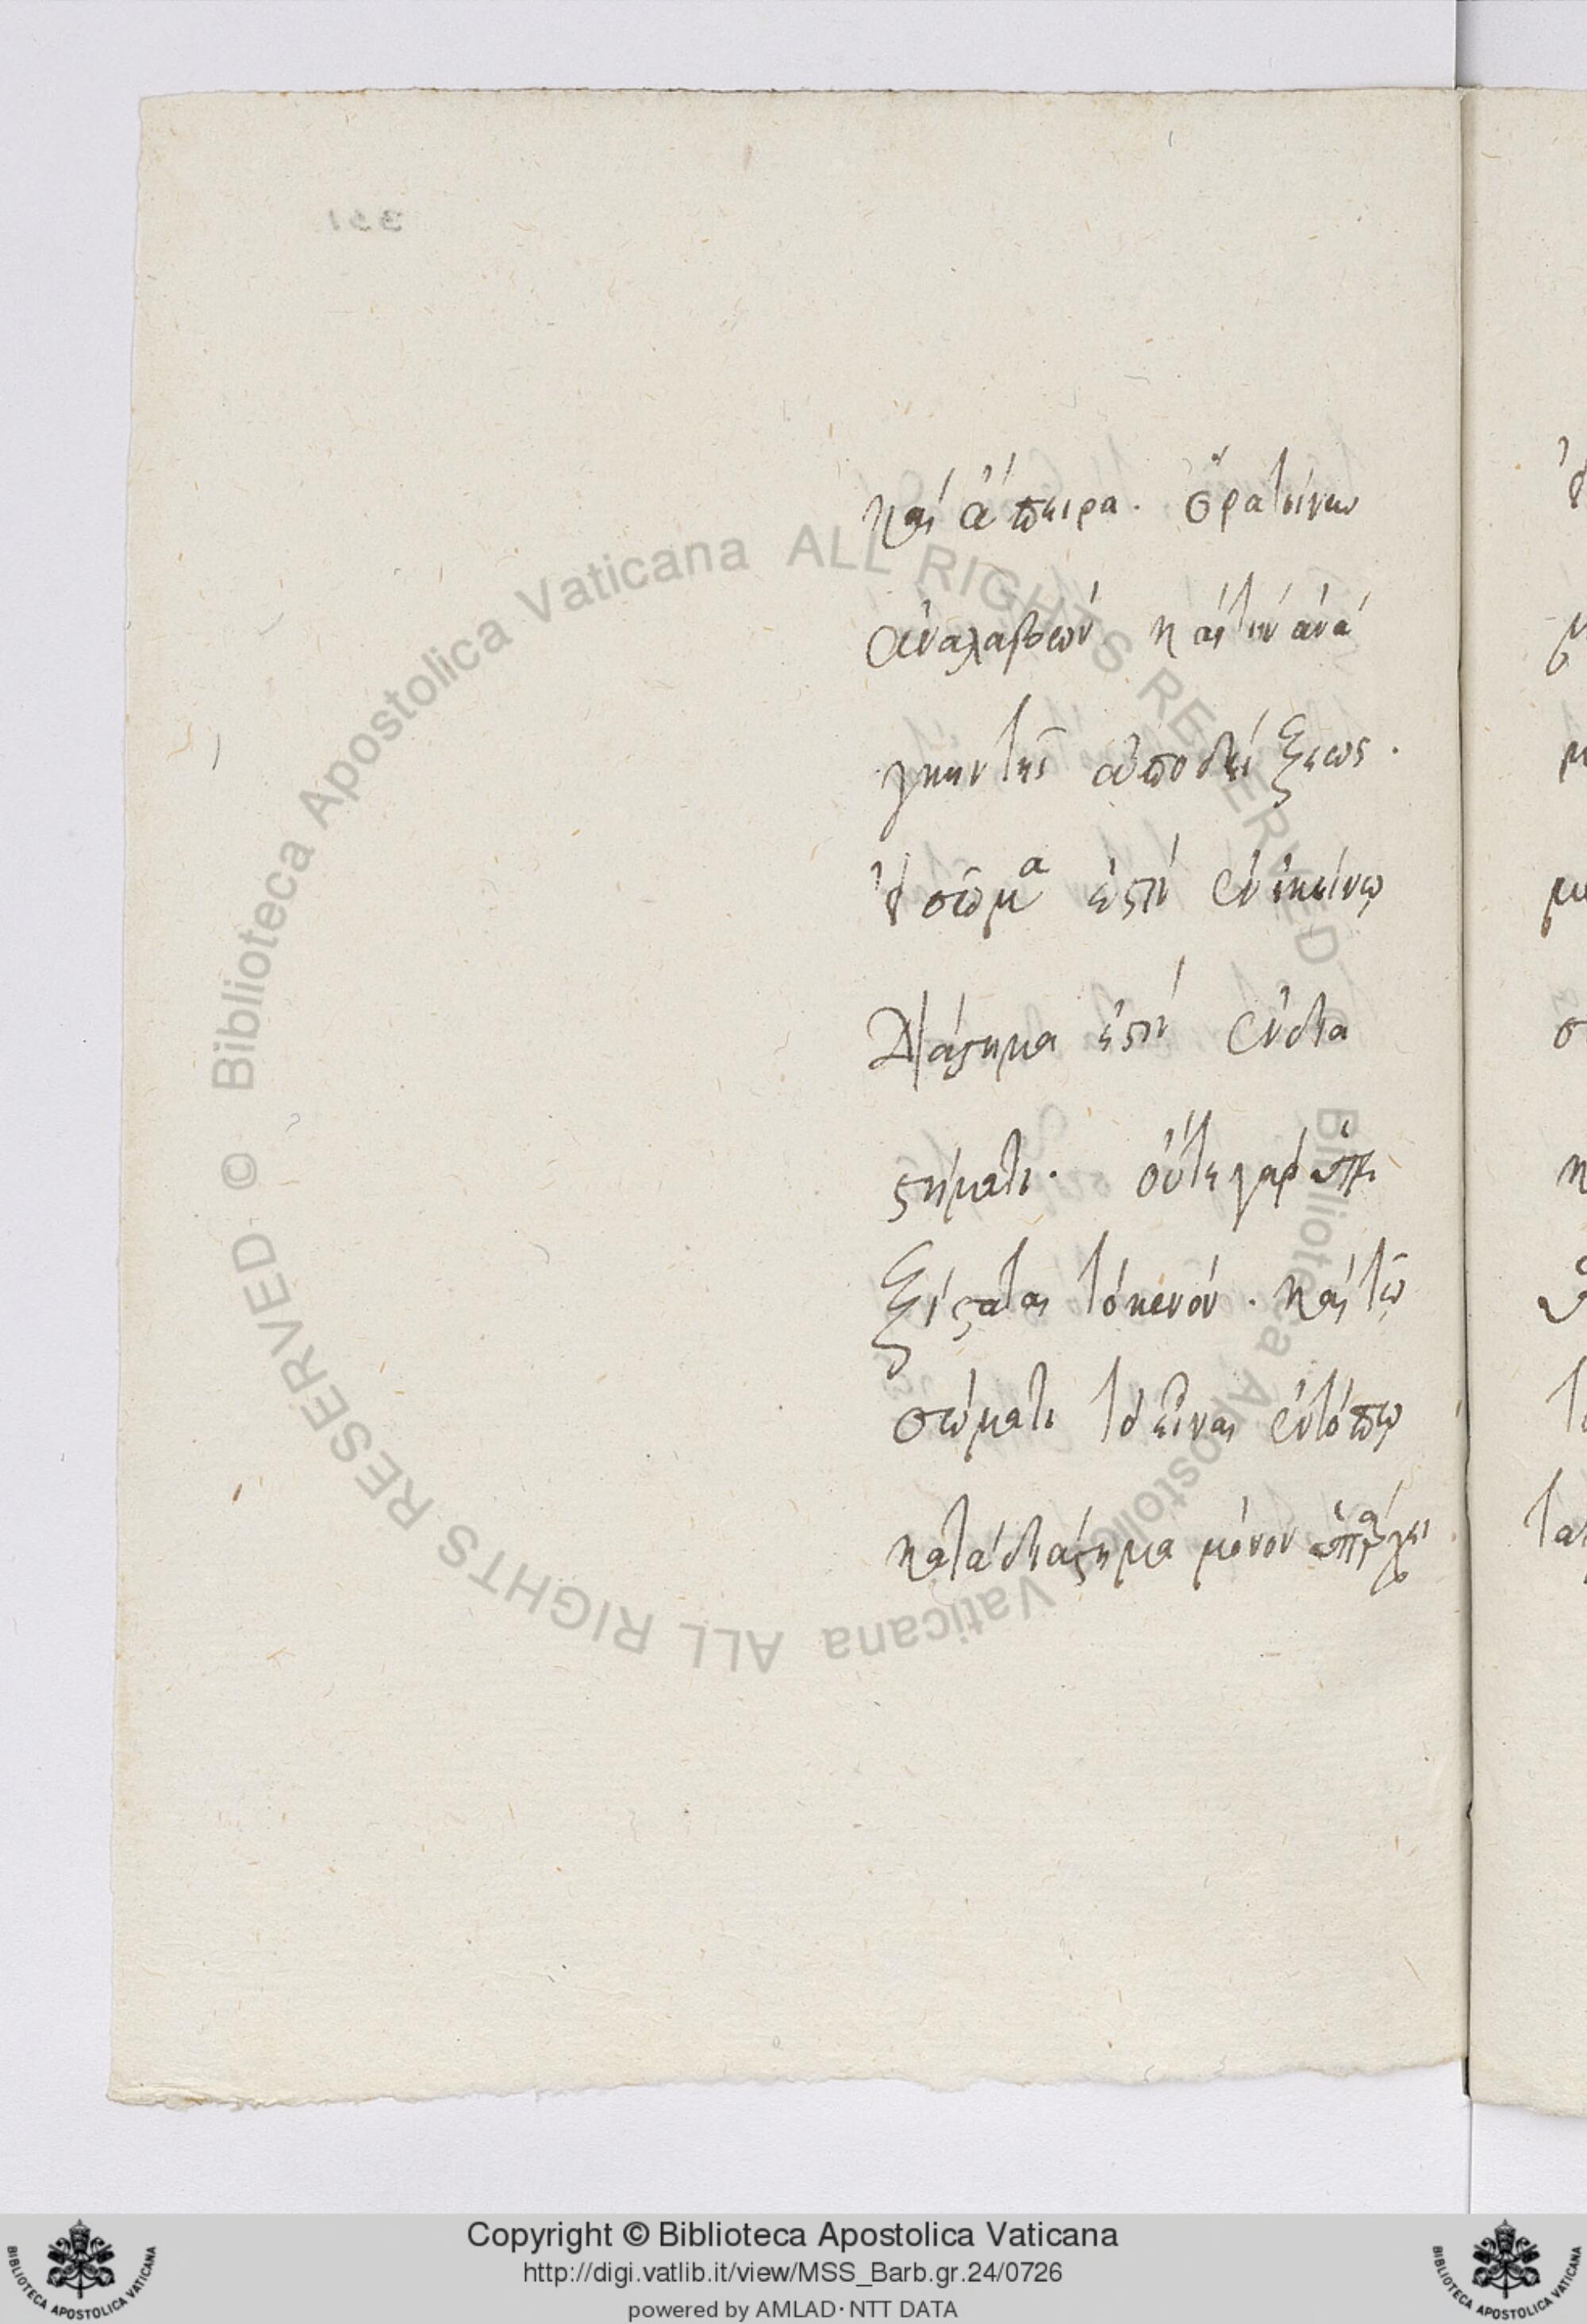 καὶ ἄπειρα. ὅρα τοίνυν
ἀναλαβὼν καὶ τὴν ἀνά
γκην τῆς ἀποδείξεως.
οὐ σῶμα ἐστὶν ἐν ἐκείνῳ
Διάστημα ἐστὶν ἐν δια
στήματι. οὔτε γὰρ ὑπε
ξίσταται τὸ κενόν. καὶ τῷ
σώματι τὸ εἶναι ἐν τόπῳ
κατὰ διάστημα μόνον ὑπάρχει
Biblioteca Apostolica Vaticana ALL RIGHTS RESERVED ©
Biblioteca Apostolica Vaticana ALL RIGHTS RESERVED ©
Copyright © Biblioteca Apostolica Vaticana
http://digi.vatlib.it/view/MSS_Barb.gr.24/0726
powered by AMLAD · NTT DATA
BIBLIOTECA APOSTOLICA VATICANA
BIBLIOTECA APOSTOLICA VATICANA